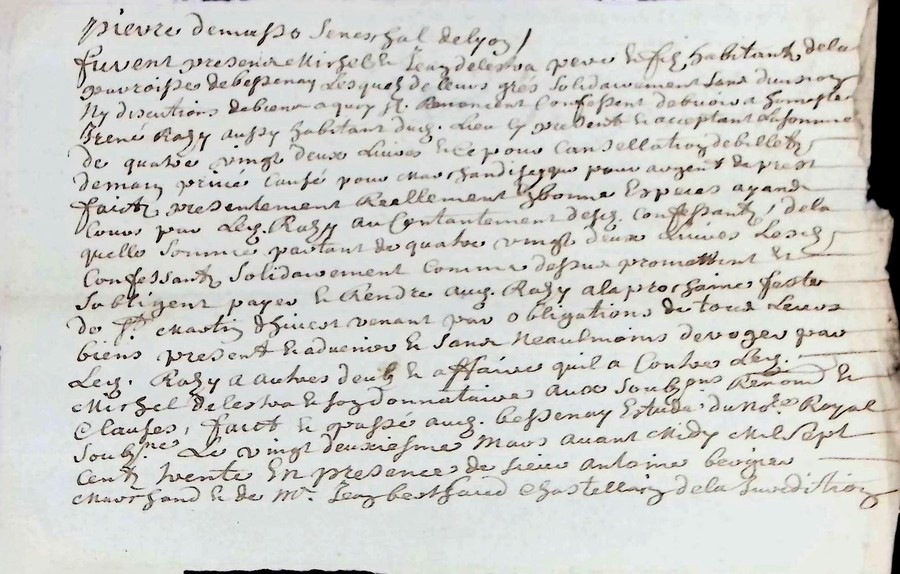 pierre demasso Seneschal de lyon /
furent presens Michel & Jean delestra pere & fils habitants de la
parroisse de bessenay Lesquels de leurs grés Solidairement Sans division
Ny discutions de biens a quoy ils Renoncent Confessent debvoir a honneste
Irené Razy aussy habitant dud. Lieu Cy present & acceptant La Somme
de quatre vingt deux Livres & Ce pour Cansellation de billets
de main privé Causé pour Marchandise que pour argent de prest
faict presentement Reallement & bonne Especes ayand
Cours par Led. Razy au Contantement desd. Confessants / de la
quelle Somme partant de quatre vingt deux Livres Lesd.
Confessants Solidairement Comme dessus promettent &
Sobligent payer & Rendre aud. Razy a la prochaine feste
de St Martin dhivert venant par obligations de tous Leurs
biens present & advenir & Sans Neaulmoins deroger par
Led. Razy a autres deub & affaire quil a Contre Led.
Michel delestra & son donnataire aux Soubzons Renond &
Clauses, faict & passé aud. bessenay Estude du Nore Royal
Soubzne Le vingt deuxiesme Mars avant Midy Mil Sept
Cent trente En presence de sieur Antoine
Marchand & de Mr Jean Chastellain de la Juridition